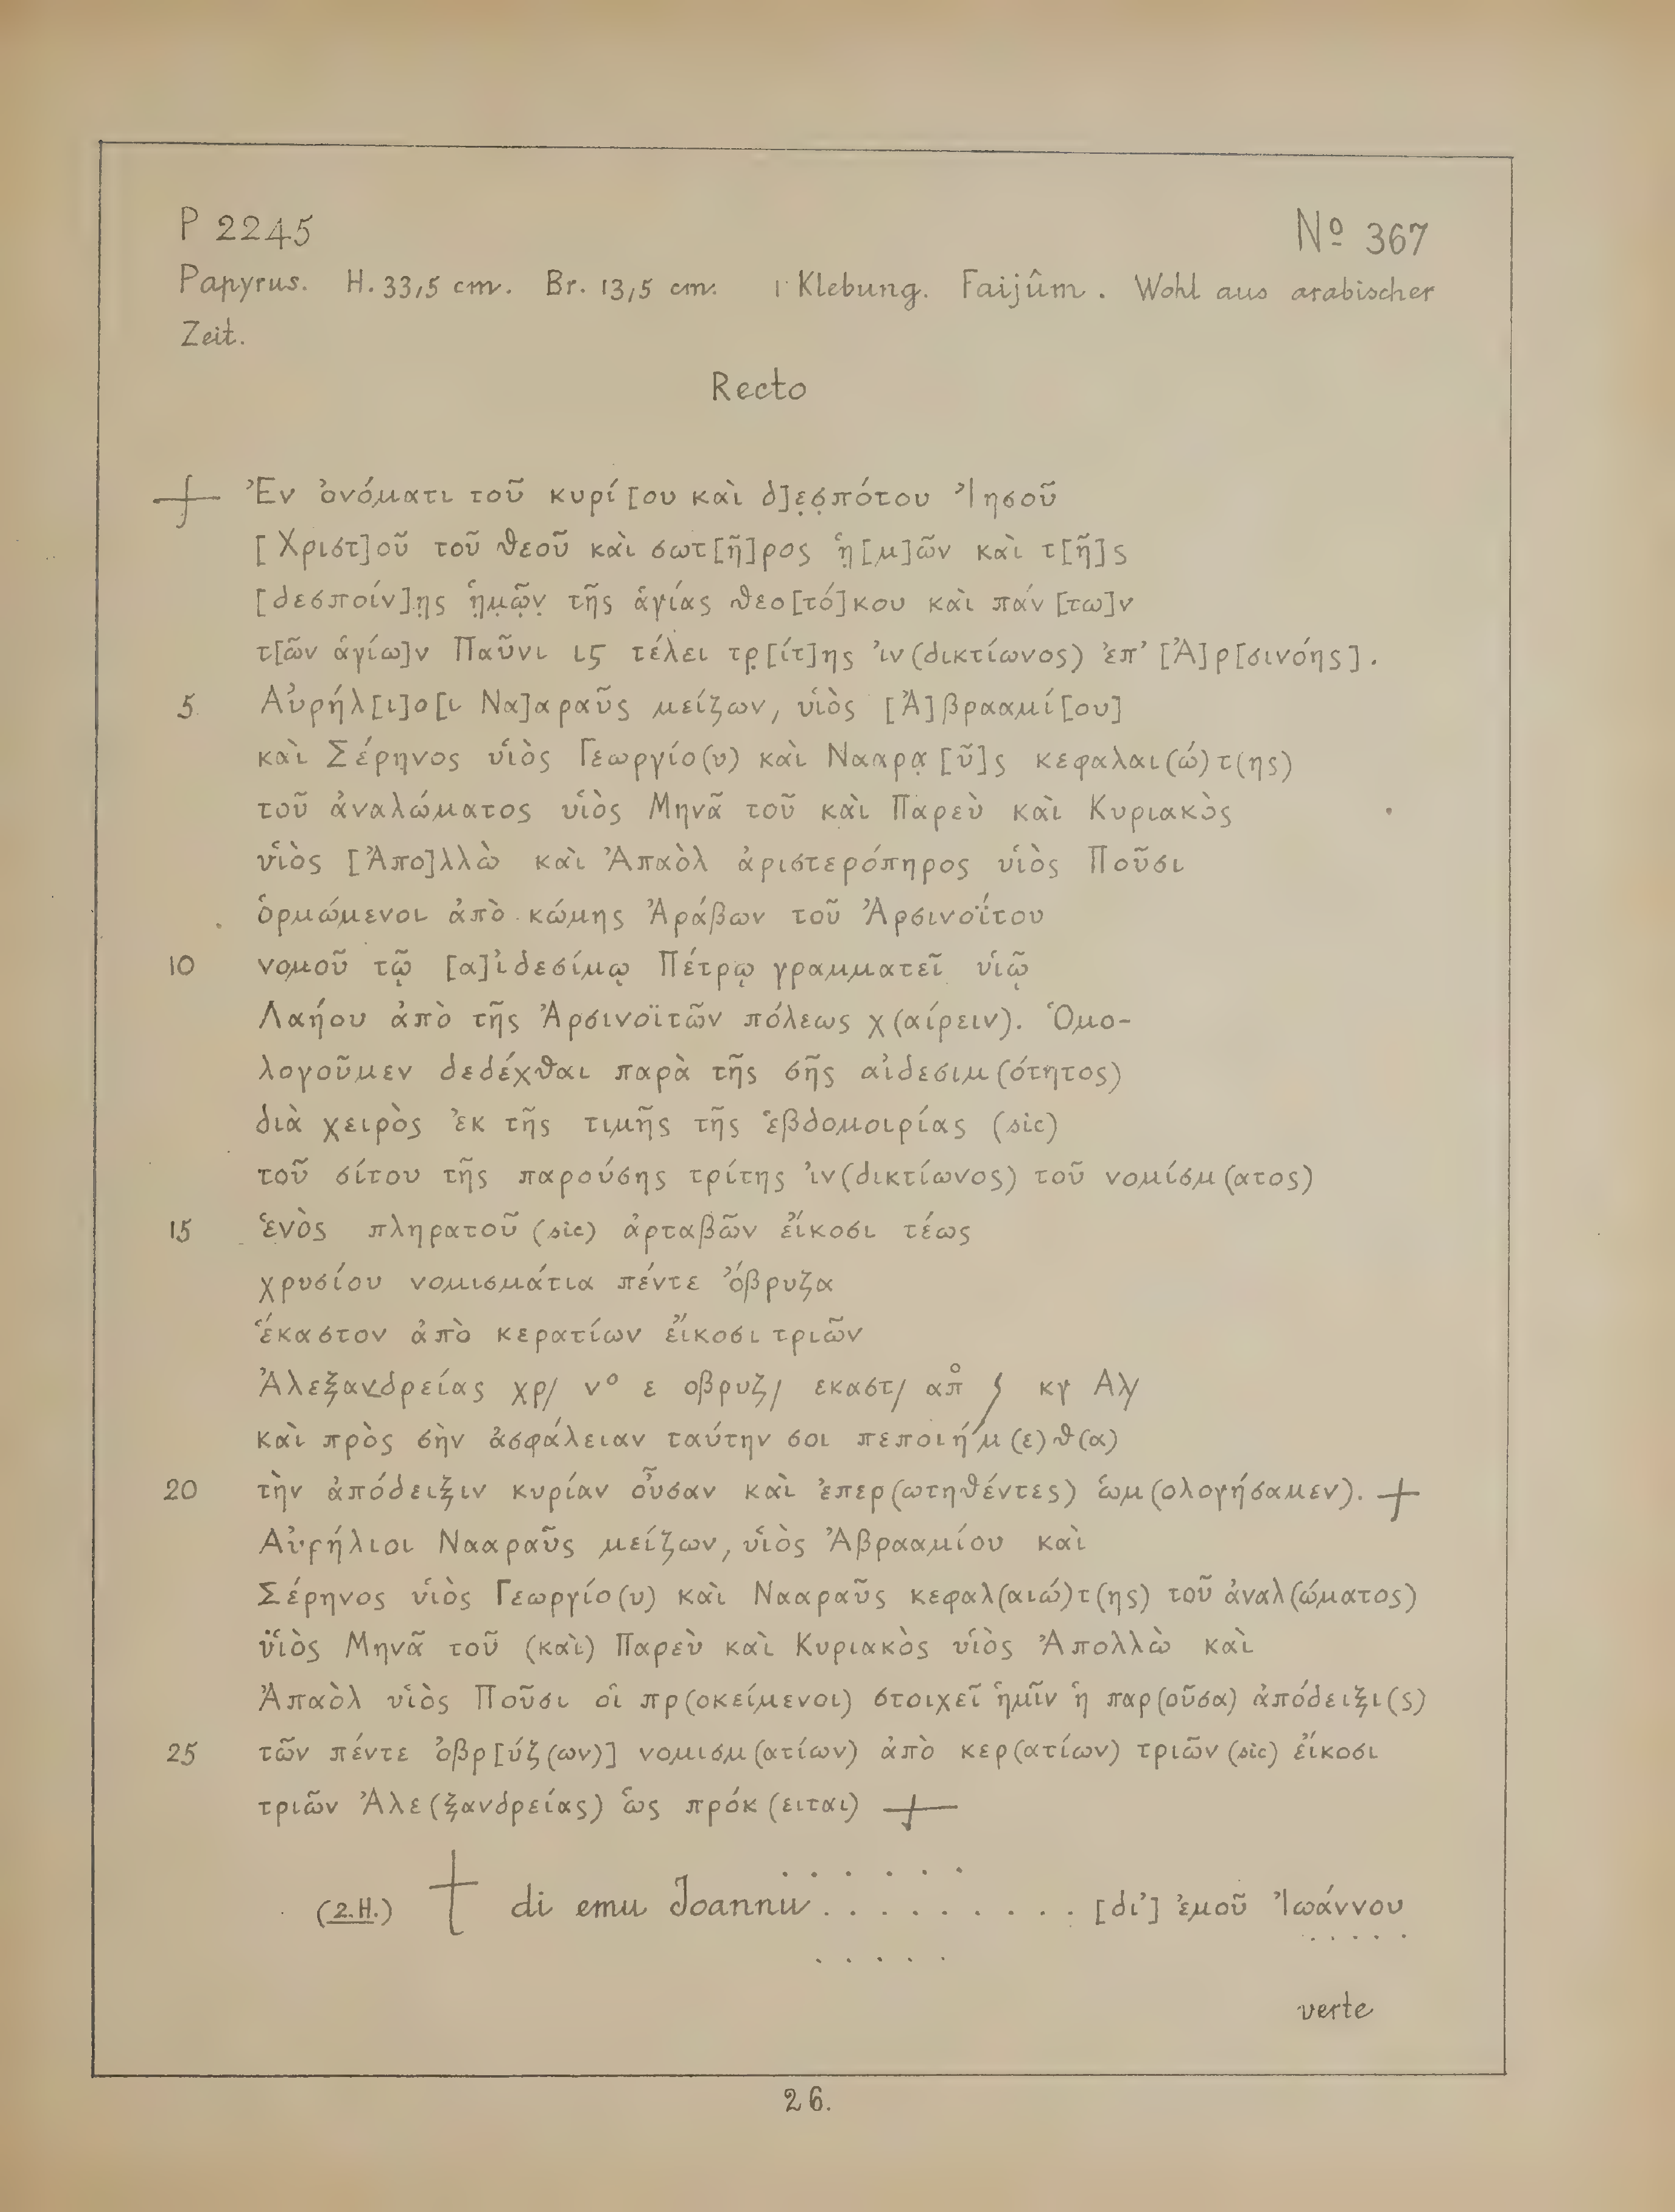 P 2245 Nº 367
Papyrus. H. 33,5 cm. Br. 13,5 cm. 1 Klebung. Faijûm. Wohl aus arabischer
Zeit.
Recto
┼ Ἐν ὀνόματι τοῦ κυρί[ου καὶ δ]ε̣σ̣πότου Ἰησοῦ
[Χριστ]οῦ τοῦ θεοῦ καὶ σωτ[ῆ]ρος ἡ̣[μ]ῶν καὶ τ[ῆ]ς
[δεσποίν]η̣ς ἡ̣μ̣ῶ̣ν̣ τῆς ἁγίας θεο[τό]κου καὶ πάν[τω]ν
τ[ῶν ἁγίω]ν Παῦνι ις τέλει τρ̣[ίτ]ης ἰν(δικτίωνος) ἐπ’ [Ἀ]ρ[σινόης].
5 Αὐρήλ[ι]ο[ι Να]αραῦς μείζων, υἱὸς [Ἀ]βρααμί[ου]
καὶ Σέρηνος υἱὸς Γεωργίο(υ) καὶ Νααρα̣[ῦ]ς κεφαλαι(ώ)τ(ης)
τοῦ ἀναλώματος υἱὸς Μηνᾶ τοῦ καὶ Παρεὺ καὶ Κυριακὸς
υἱὸς [Ἀπο]λλὼ καὶ Ἀπαὸλ ἀριστερόπηρος υἱὸς Ποῦσι
ὁρμώμενοι ἀπὸ κώμης Ἀράβων τοῦ Ἀρσινοΐτου
10 νομοῦ τῷ [α]ἰδεσίμῳ Πέτρῳ γραμματεῖ υἱῷ
Λαήου ἀπὸ τῆς Ἀρσινοϊτῶν πόλεως χ(αίρειν). Ὁμο-
λογοῦμεν δεδέχθαι παρὰ τῆς σῆς αἰδεσιμ(ότητος)
διὰ χειρὸς ἐκ τῆς τιμῆς τῆς ἑβδομοιρίας (sic)
τοῦ σίτου τῆς παρούσης τρίτης ἰν(δικτίωνος) τοῦ νομίσμ(ατος)
15 ἑνὸς πληρατοῦ (sic) ἀρταβῶν εἴκοσι τέως
χρυσίου νομισμάτια πέντε ὄβρυζα
ἕκαστον ἀπὸ κερατίων εἴκοσι τριῶν
Ἀλεξανδρείας χρ/ νο ε οβρυζ/ εκαστ/ απο ϛ κγ Αλ/
καὶ πρὸς σὴν ἀσφάλειαν ταύτην σοι πεποιήμ(ε)θ(α)
20 τὴν ἀπόδειξιν κυρίαν οὖσαν καὶ ἐπερ(ωτηθέντες) ὡμ(ολογήσαμεν). ┼
Αὐρήλιοι Νααραῦς μείζων, υἱὸς Ἀβρααμίου καὶ
Σέρηνος υἱὸς Γεωργίο(υ) καὶ Νααραῦς κεφαλ(αιώ)τ(ης) τοῦ ἀναλ(ώματος)
ϋἱὸς Μηνᾶ τοῦ (καὶ) Παρεὺ καὶ Κυριακὸς υἱὸς Ἀπολλὼ καὶ
Ἀπαὸλ υἱὸς Ποῦσι οἱ πρ(οκείμενοι) στοιχεῖ ἡμῖν ἡ παρ(οῦσα) ἀπόδειξι(ς)
25 τῶν πέντε ὀβρ[ύζ(ων)] νομισμ(ατίων) ἀπὸ κερ(ατίων) τριῶν (sic) εἴκοσι
τριῶν Ἀλε(ξανδρείας) ὡς πρόκ(ειται) ┼
(2.H.) ┼ di emu Joannu......... [δι’] ἐμοῦ Ἰωάννου
verte
26.